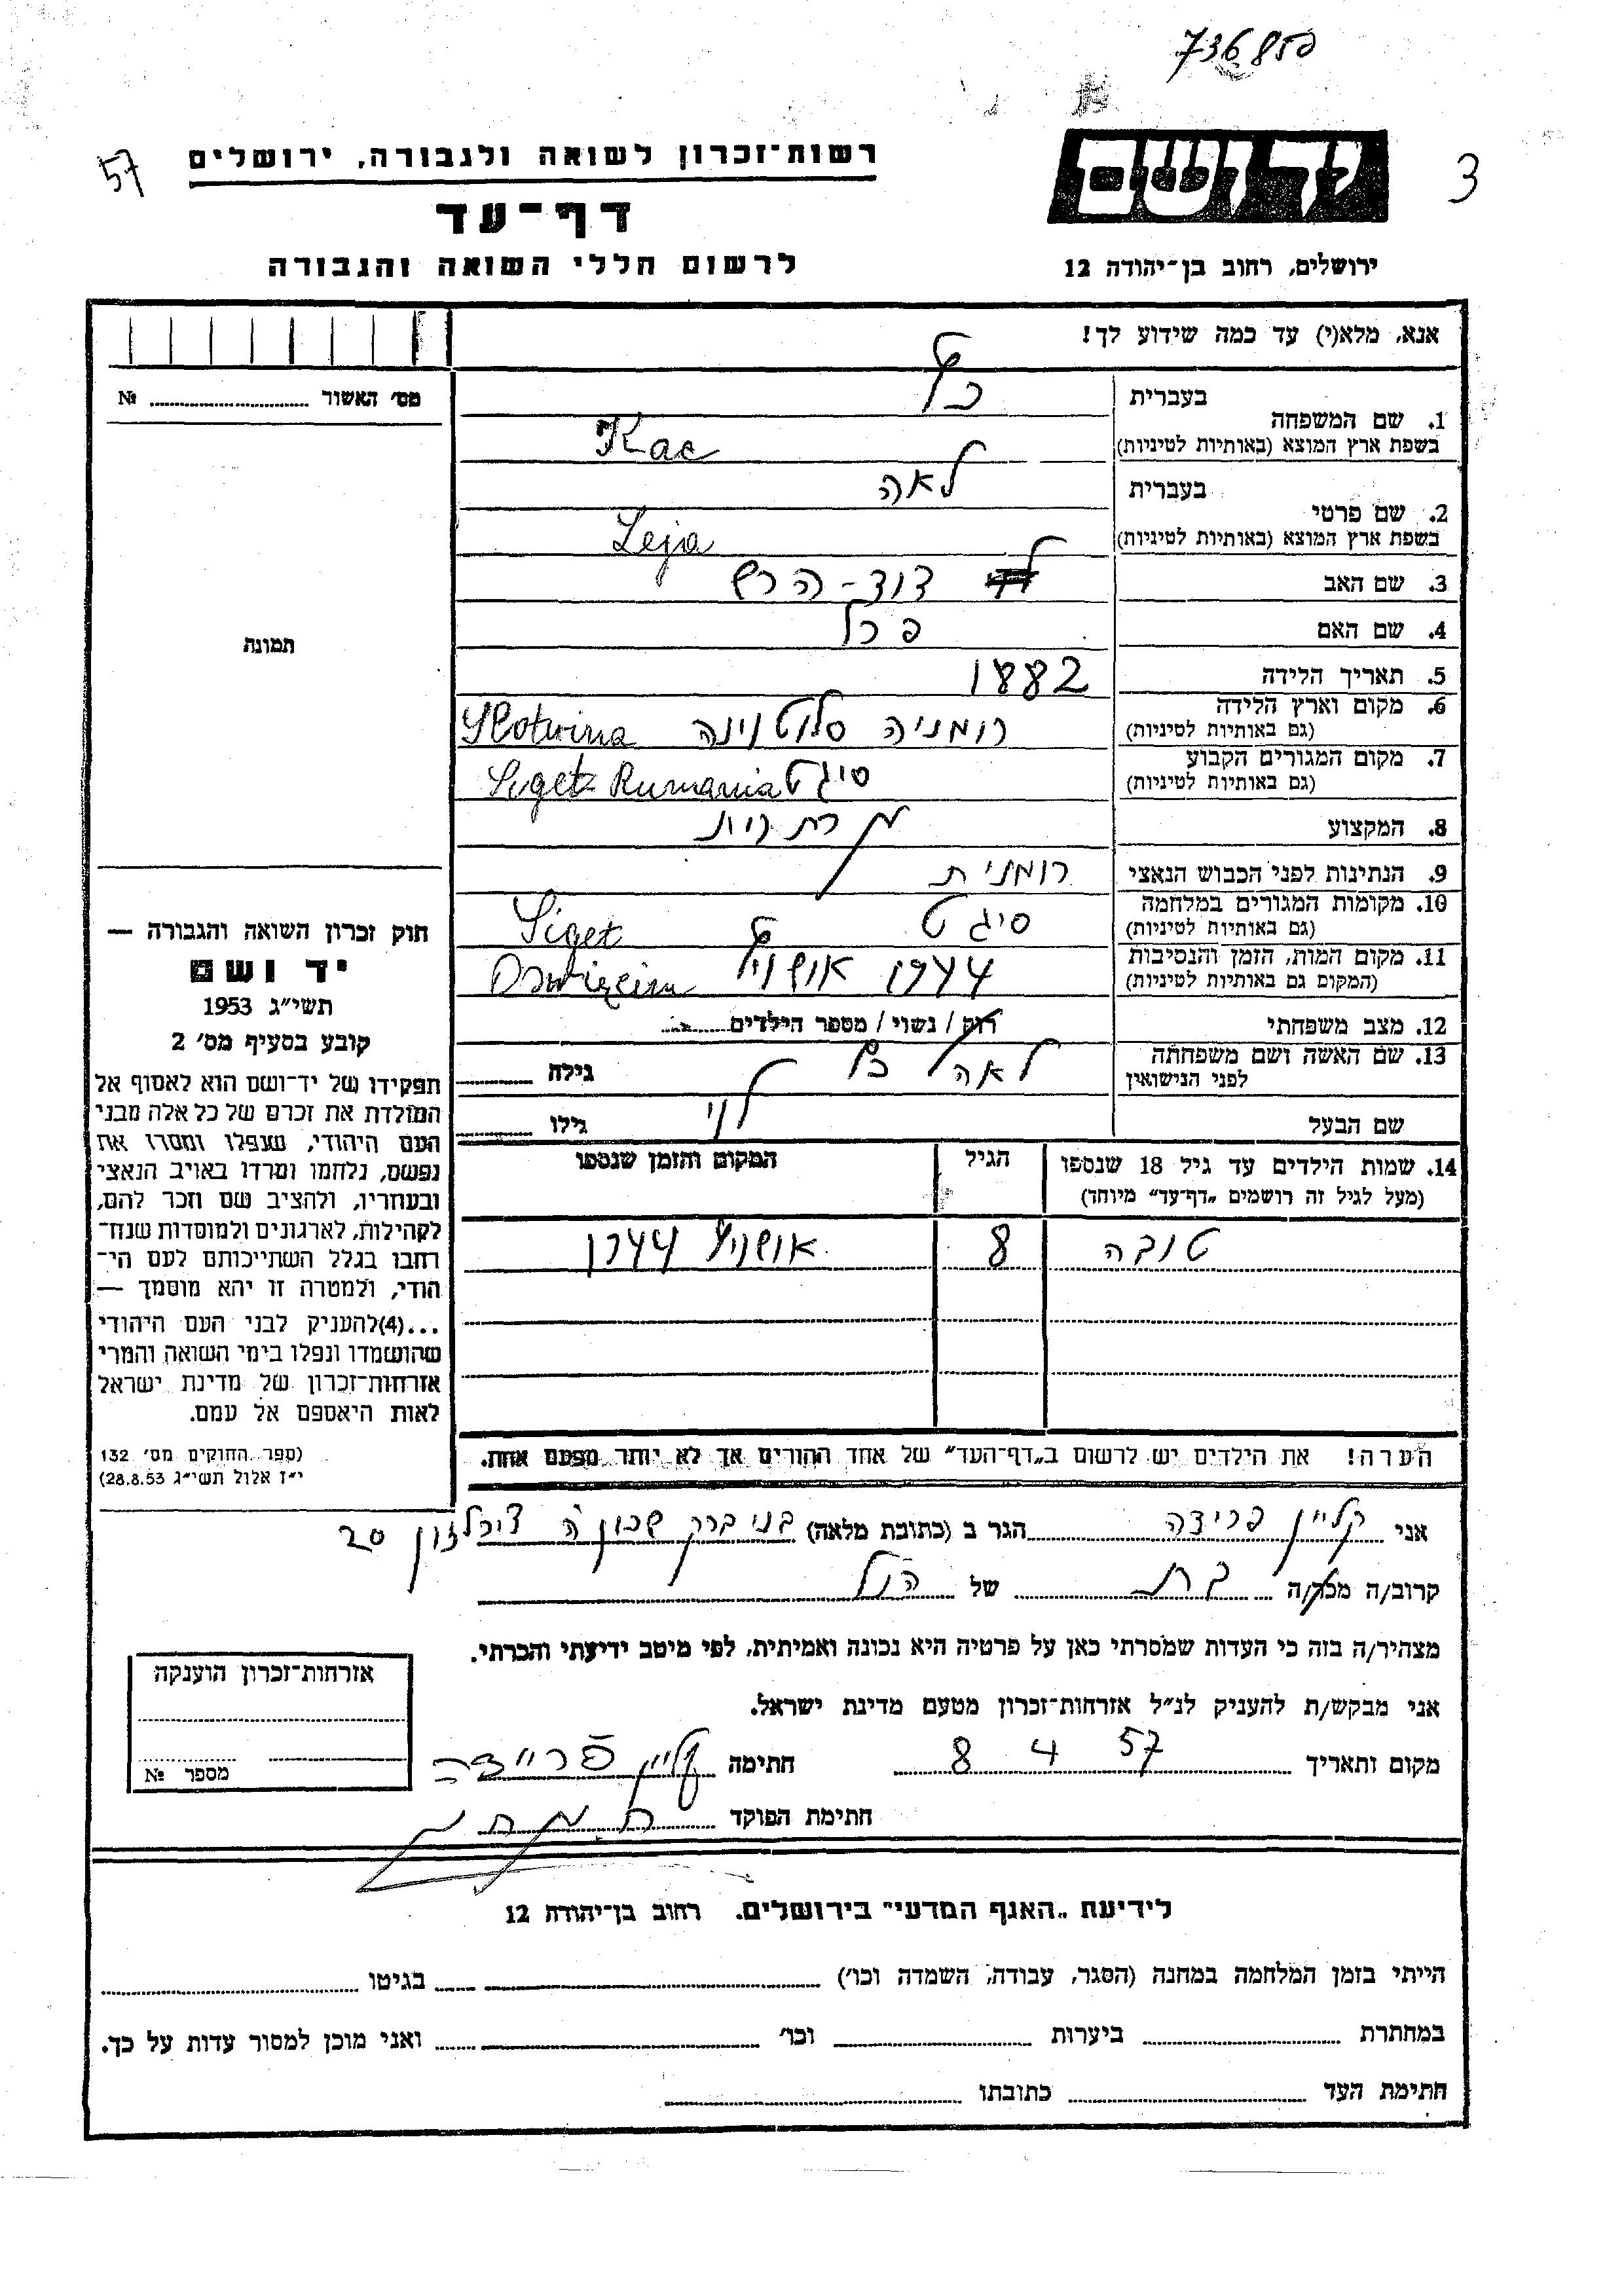 736850
57
3
רשות־זכרון לשואה ולגבורה, ירושלים
יד ושם
דף־עד
לרשום חללי השואה והגבורה
ירושלים, רחוב בן־יהודה 12
אנא, מלא(י) עד כמה שידוע לך!
מס' האשור № 
תמונה
1. שם המשפחה
בעברית כץ
בשפת ארץ המוצא (באותיות לטיניות) Kac
2. שם פרטי
בעברית לאה
בשפת ארץ המוצא (באותיות לטיניות) Leja
3. שם האב דוד-הרש
4. שם האם פרל
5. תאריך הלידה 1882
6. מקום וארץ הלידה רומניה סלוטוינה Slotwina
(גם באותיות לטיניות)
7. מקום המגורים הקבוע סיגט Siget Rumania
(גם באותיות לטיניות)
8. המקצוע
9. הנתינות לפני הכבוש הנאצי רומנית
10. מקומות המגורים במלחמה סיגט Siget
(גם באותיות לטיניות)
11. מקום המות, הזמן והנסיבות 1944 אושויץ
(המקום גם באותיות לטיניות)
12. מצב משפחתי רוק / נשוי / מספר הילדים
13. שם האשה ושם משפחתה לאה כץ גילה
לפני הנישואין
שם הבעל לוי גילו
14. שמות הילדים עד גיל 18 שנספו הגיל המקום והזמן שנספו
(מעל לגיל זה רושמים „דף־עד" מיוחד)
טובה 8 אושויץ 1944
הערה! את הילדים יש לרשום ב„דף־העד" של אחד ההורים אך לא יותר מפעם אחת.
חוק זכרון השואה והגבורה —
יד ושם
תשי״ג 1953
קובע בסעיף מס' 2
תפקידו של יד־ושם הוא לאסוף אל
המולדת את זכרם של כל אלה מבני
העם היהודי, שנפלו ומסרו את
נפשם, נלחמו ומרדו באויב הנאצי
ובעוזריו, ולהציב שם וזכר להם,
לקהילות, לארגונים ולמוסדות שנח־
רבו בגלל השתייכותם לעם הי־
הודי, ולמטרה זו יהא מוסמך —
...(4) להעניק לבני העם היהודי
שהושמדו ונפלו בימי השואה והמרי
אזרחות־זכרון של מדינת ישראל
לאות היאספם אל עמם.
(ספר החוקים מס' 132
י״ז אלול תשי״ג 28.8.53)
אני קליין פרידה הגר ב (כתובת מלאה) בני ברק שכון ה 20
קרוב/ה מכר/ה בת של הנ״ל
מצהיר/ה בזה כי העדות שמסרתי כאן על פרטיה היא נכונה ואמיתית, לפי מיטב ידיעתי והכרתי.
אני מבקש/ת להעניק לנ״ל אזרחות־זכרון מטעם מדינת ישראל.
מקום ותאריך 8 4 57 חתימה קליין פריידה
חתימת הפוקד
אזרחות־זכרון הוענקה
מספר №
לידיעת „האגף המדעי" בירושלים. רחוב בן־יהודה 12
הייתי בזמן המלחמה במחנה (הסגר, עבודה, השמדה וכו') בגיטו
במחתרת ביערות וכו' ואני מוכן למסור עדות על כך.
חתימת העד כתובתו